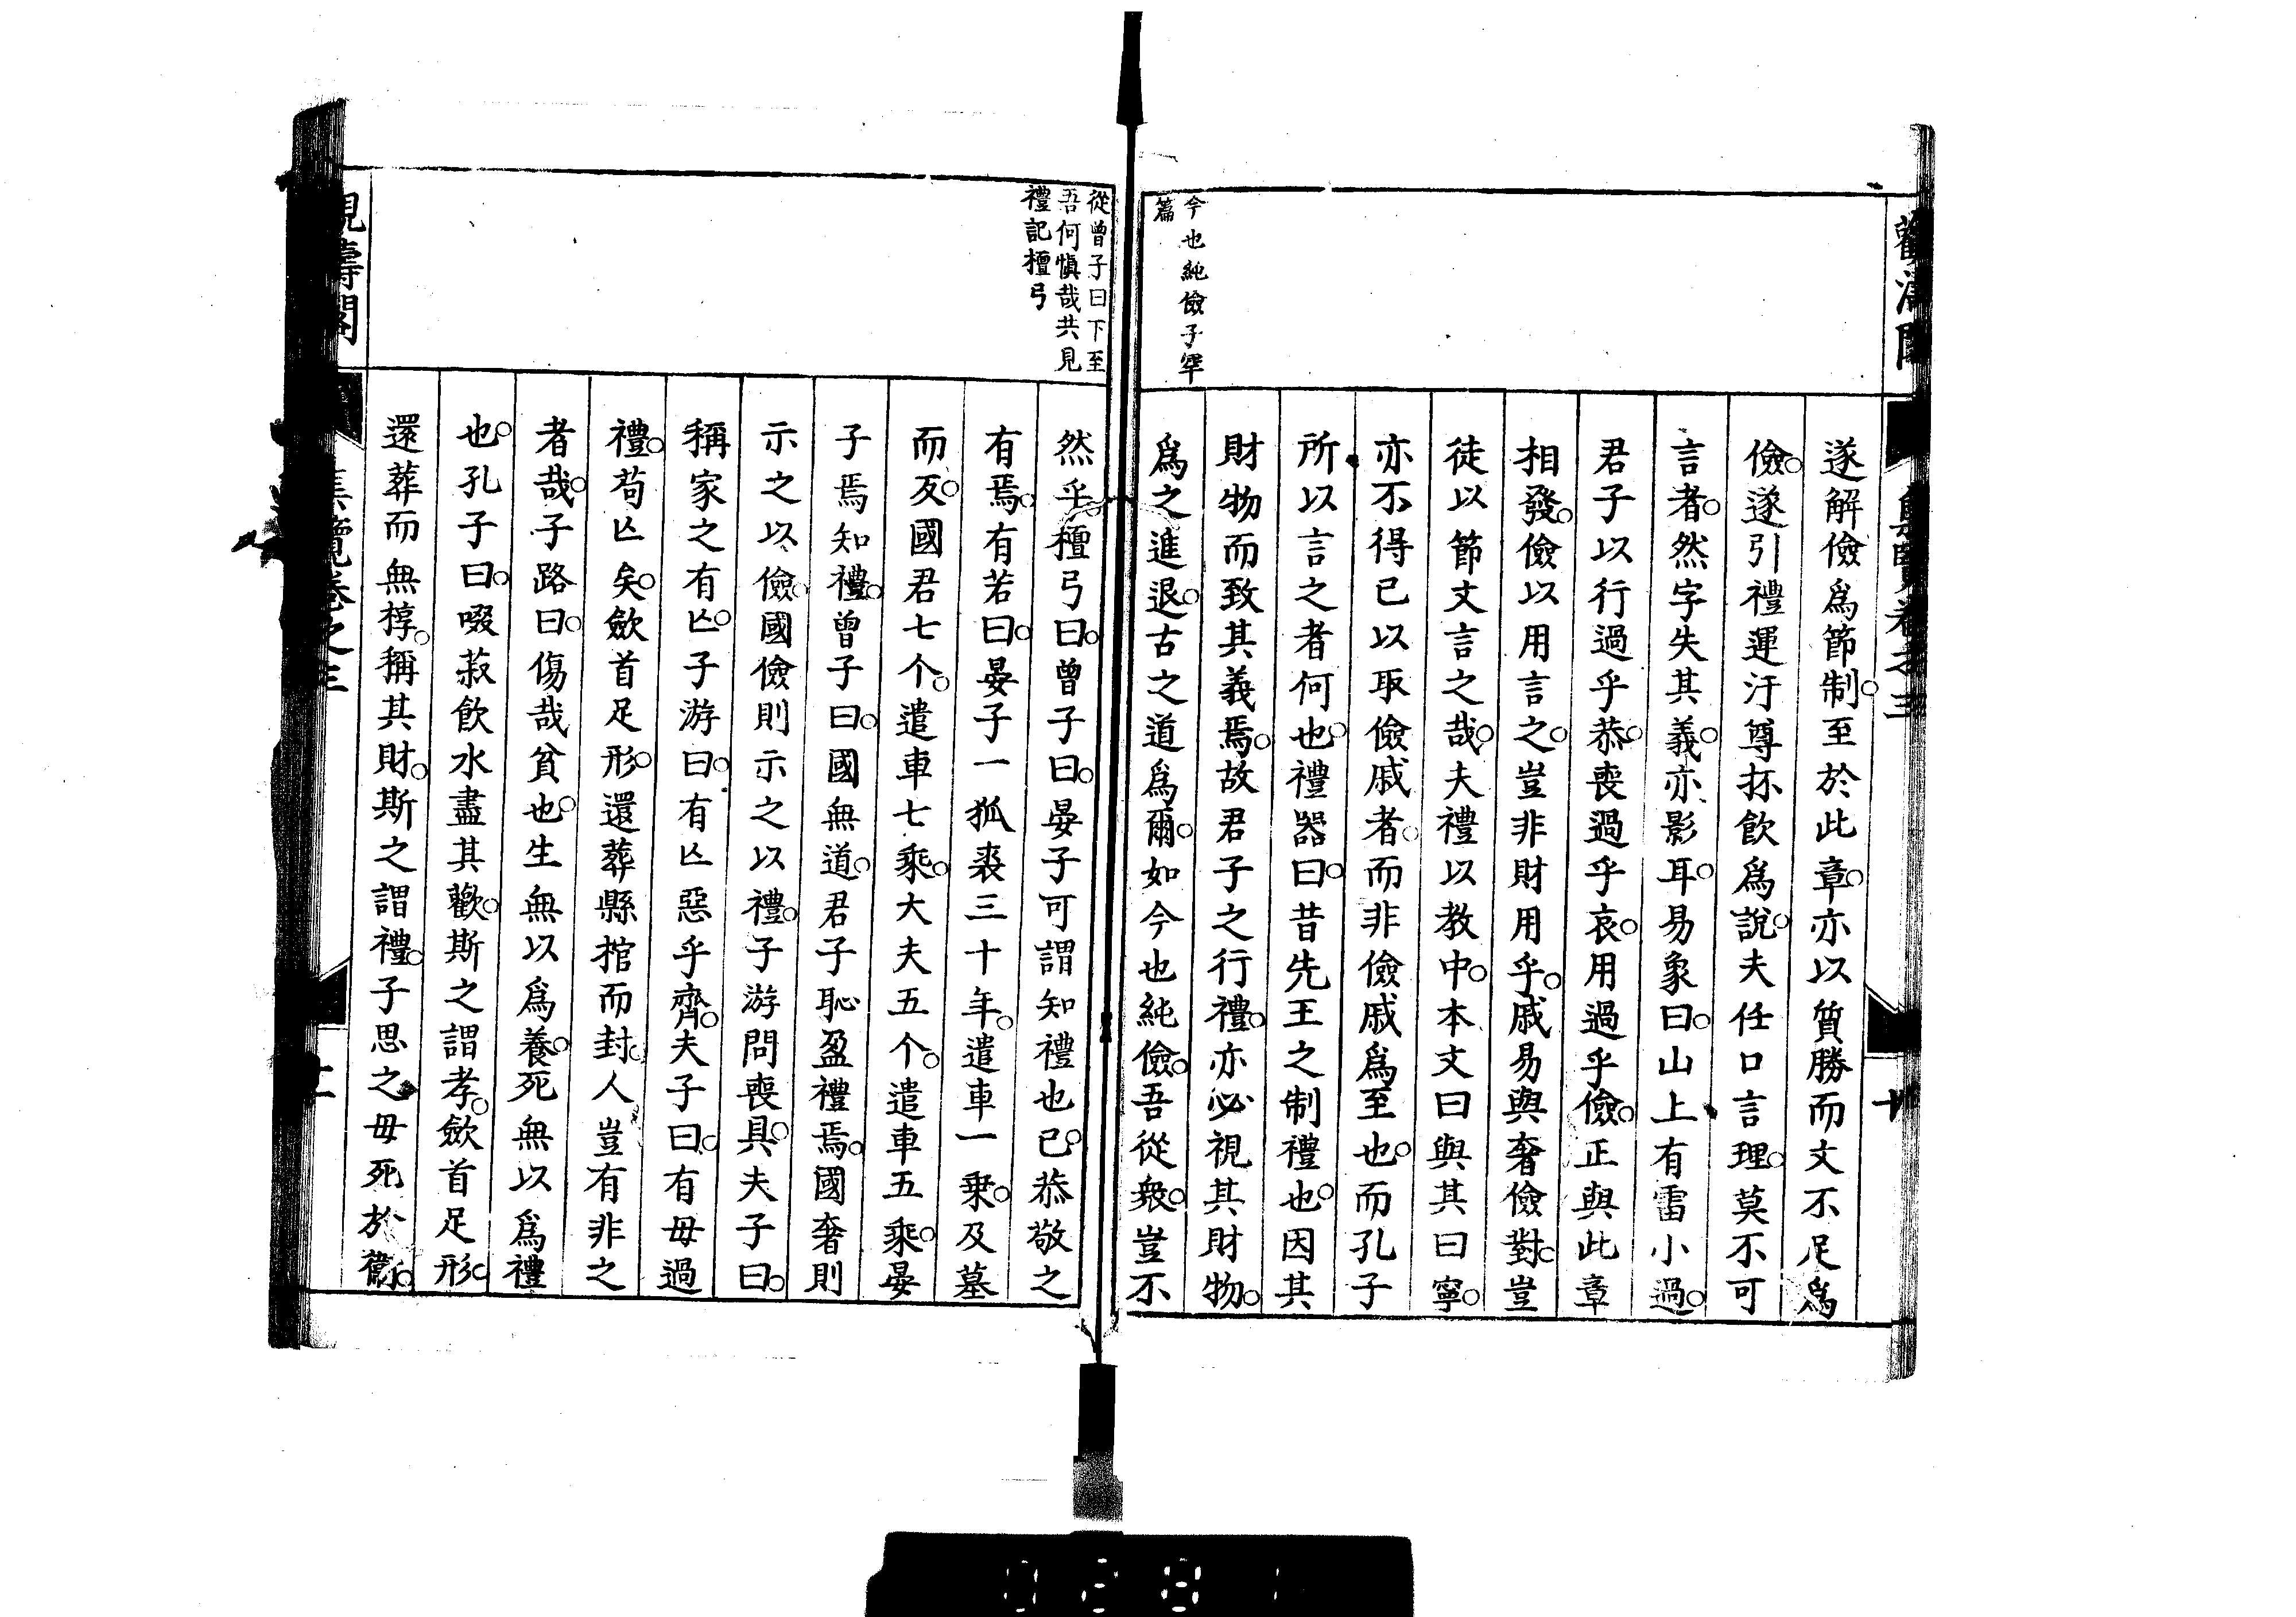 遂解儉爲節制。至於此章。亦以質勝而文不足爲
儉。遂引禮運汙尊抔飲爲說。夫任口言理。莫不可
言者。然字失其義。亦影耳。易象曰。山上有雷小過。
君子以行過乎恭。喪過乎哀。用過乎儉。正與此章
相發。儉以用言之。豈非財用乎。戚易與奢儉對。豈
徒以節文言之哉。夫禮以教中。本文曰與其曰寧。
亦不得已以取儉戚者。而非儉戚爲至也。而孔子
所以言之者何也。禮器曰。昔先王之制禮也。因其
財物而致其義焉。故君子之行禮。亦必視其財物。
爲之進退。古之道爲爾。如今也純儉。吾從衆。豈不
今也純儉子罕
篇
然乎。檀弓曰。曾子曰。晏子可謂知禮也已。恭敬之
有焉。有若曰。晏子一狐裘三十年。遣車一乗。及墓
而反。國君七个。遣車七乘。大夫五个。遣車五乘。晏
子焉知禮。曾子曰。國無道。君子恥盈禮焉。國奢則
示之以儉。國儉則示之以禮。子游問喪具。夫子曰。
稱家之有亾。子游曰。有亾惡乎齊。夫子曰。有毋過
禮。苟亾矣。歛首足形。還葬縣棺而封。人豈有非之
者哉。子路曰。傷哉貧也。生無以爲養。死無以爲禮
也。孔子曰。啜菽飲水盡其歡。斯之謂孝。歛首足形。
還葬而無椁。稱其財。斯之謂禮。子思之母死於衞。
從曾子曰下至
吾何愼哉共見
禮記檀弓